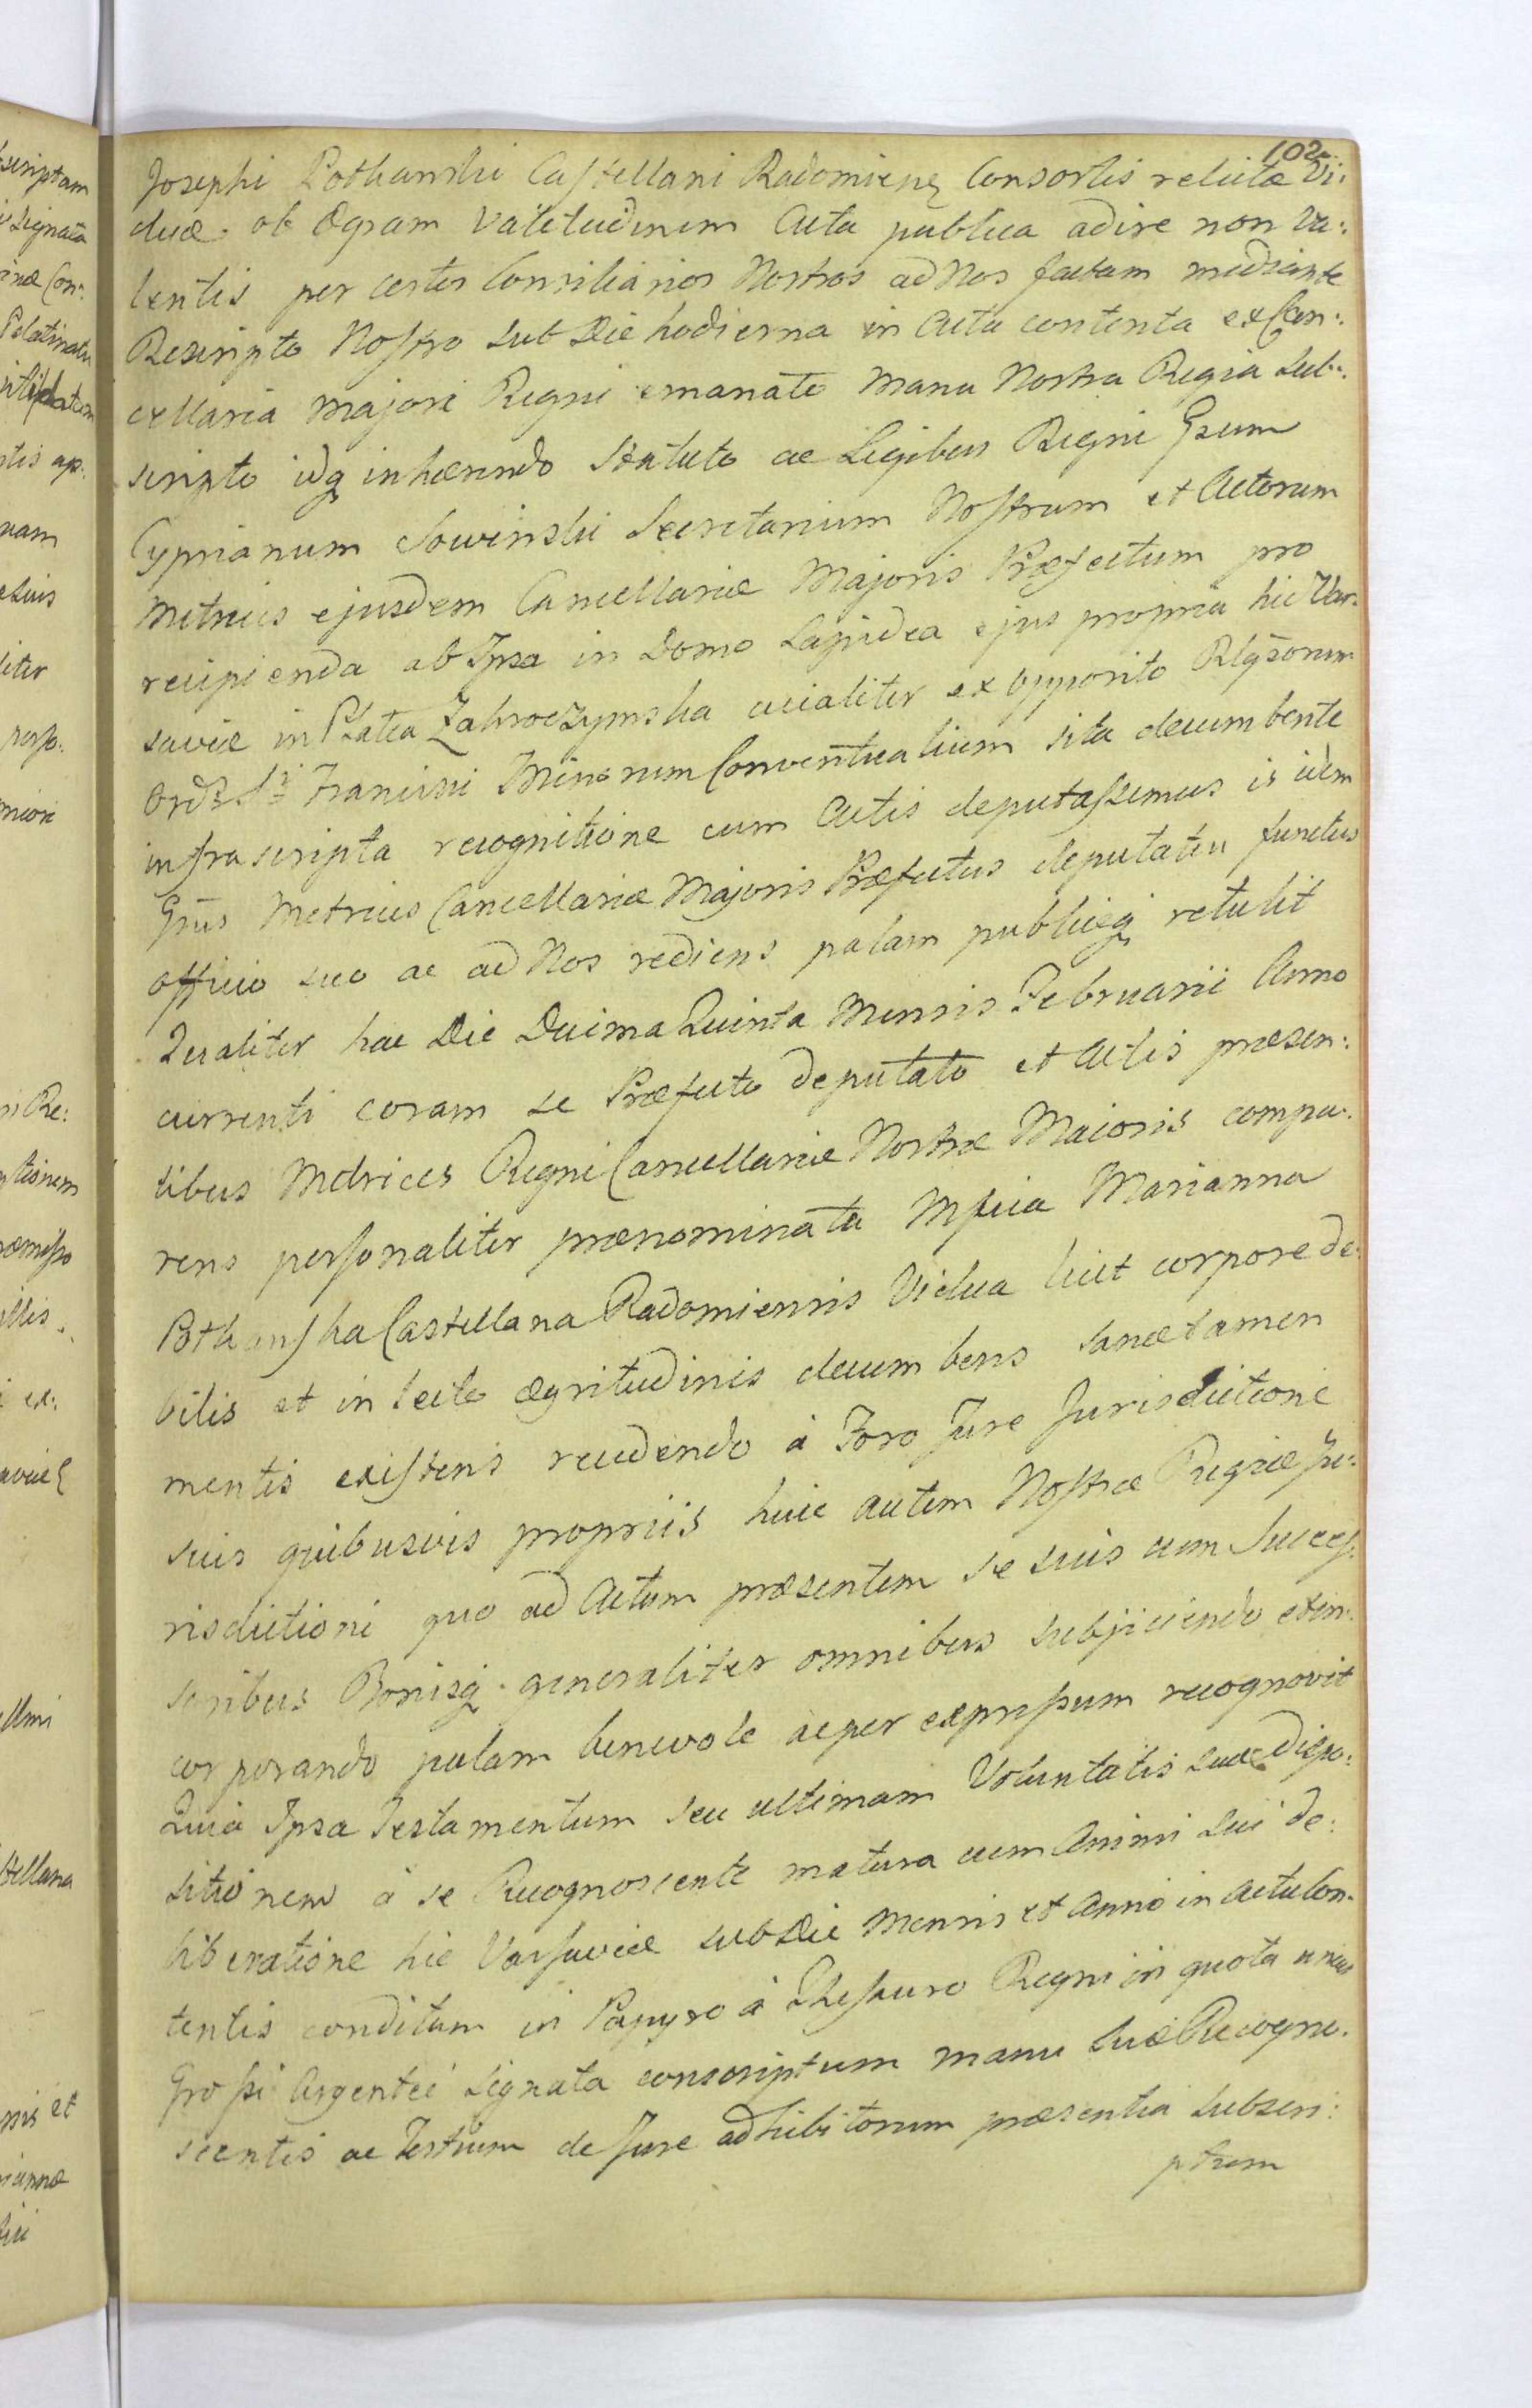 102
Josephi Pothanski Castellani Radomiens Consortis relictæ Vi:
duæ ob Ægram Valetudinem Acta publica adire non va:
lentis per certos Consiliarios Nostros ad Nos factam mediante
Rescripto Nostro sub Die hodierna in Acta contenta ex Can:
cellaria Majori Regni emanato Manu Nostra Regia sub:
scripto idq inhærendo Statuto ac Legibus Regni Gsum
Cyprianum Sowinski Secretarium Nostrum et Actorum
Metrices ejusdem Cancellariæ Majoris Præfectum pro
recipienda ab Ipsa in Domo Lapidea ejus propria hic Var:
saviæ in Platea Zakroczymska acialiter ex opposito Rlgsorum
Ord: Sti Francisci Minorum Conventualium sita decumbente
infrascripta recognitione cum Actis deputassemus is idem
Gsus Metrices Cancellariæ Majoris Præfectus deputatus functus
officio suo ac ad Nos rediens palam publiceq retulit
Veraliter hac Die Decima Quinta Mensis Februarii Anno
currenti coram se Præfecto deputato et Actis præsen:
tibus Metrices Regni Cancellariæ Nostræ Maioris compa:
rens personaliter prænominata Mfica Marianna
Pothanska Castellana Radomiensis Vidua licet corpore de:
bilis et in lecto ægritudinis decumbens sanæ tamen
mentis existens recedendo à Foro Jure Jurisdictione
suis quibusvis propriis huic autem Nostræ Regiæ Ju:
risdictioni quo ad Actum præsentem se suis cum Succes:
soribus Bonisq generaliter omnibus subjiciendo et in:
corporando palam benevole ac per expressum recognovit
Quia Ipsa Testamentum seu ultimam Voluntatis suæ Dispo:
sitionem à se Recognoscente matura cum Animi sui de:
liberatione hic Varsaviæ sub Die Mensis et Anno in Actu Con:
tentis conditum in Papyro à Thesauro Regni in quota unius
Grossi Argentei signata conscriptum manu suæ Recogno:
scentis ac Testium de Jure adhibitorum præsentia subscri:
ptum